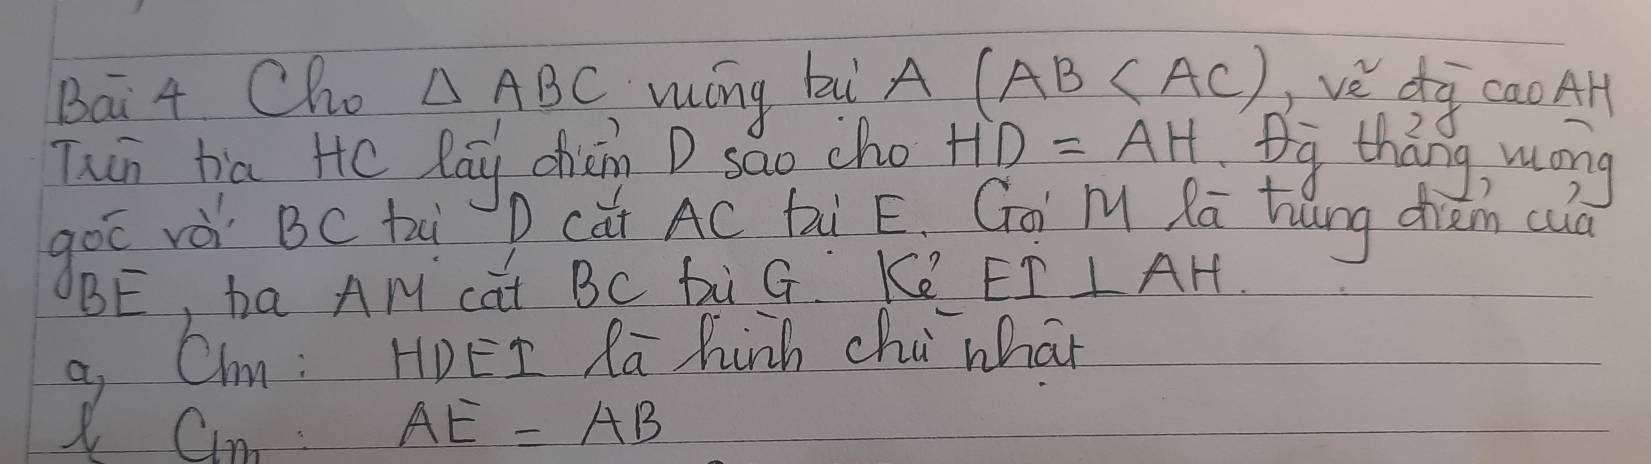 Bài 4. Cho Δ ABC vuông tại A (AB < AC), vẽ đg cao AH
Trên tia HC lấy điểm D sao cho HD = AH. Đg thẳng vuông
góc với BC tại D cắt AC tại E. Gọi M là trung điểm của
BE, tia AM cắt BC tại G. Kẻ EI ⊥ AH.
a, Cm: HDEI là hình chữ nhật
b, Cm: AE = AB